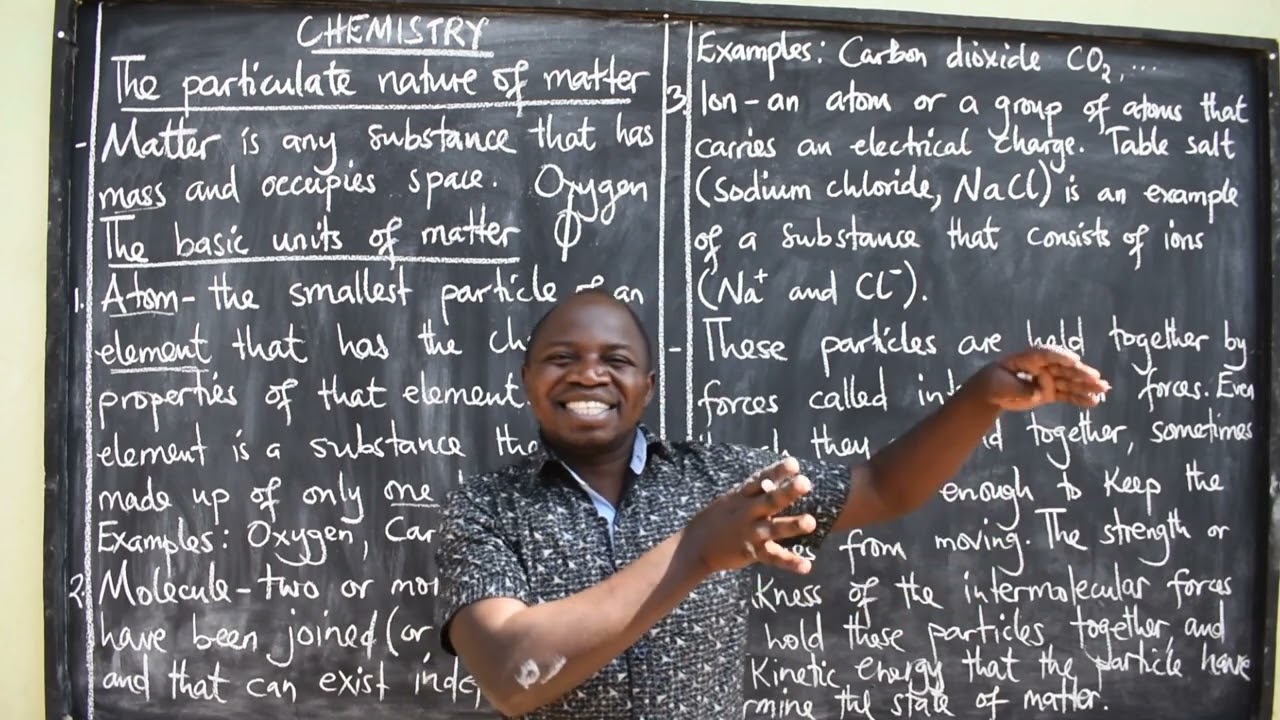 CHEMISTRY
The particulate nature of matter
- Matter is any substance that has
mass and occupies space. Oxygen
The basic units of matter
1. Atom - the smallest particle of an
element that has the
properties of that element.
element is a substance
made up of only one
Examples: Oxygen,
2. Molecule - two or
have been joined (or
and that can exist
Examples: Carbon dioxide CO₂, ...
3. Ion - an atom or a group of atoms that
carries an electrical charge. Table salt
(Sodium chloride, NaCl) is an example
of a substance that consists of ions
(Na⁺ and Cl⁻).
- These particles are held together by
forces called forces. Even
they together, sometimes
enough to keep the
from moving. The strength or
of the intermolecular forces
hold these particles together, and
Kinetic energy that the particle have
the state of matter.